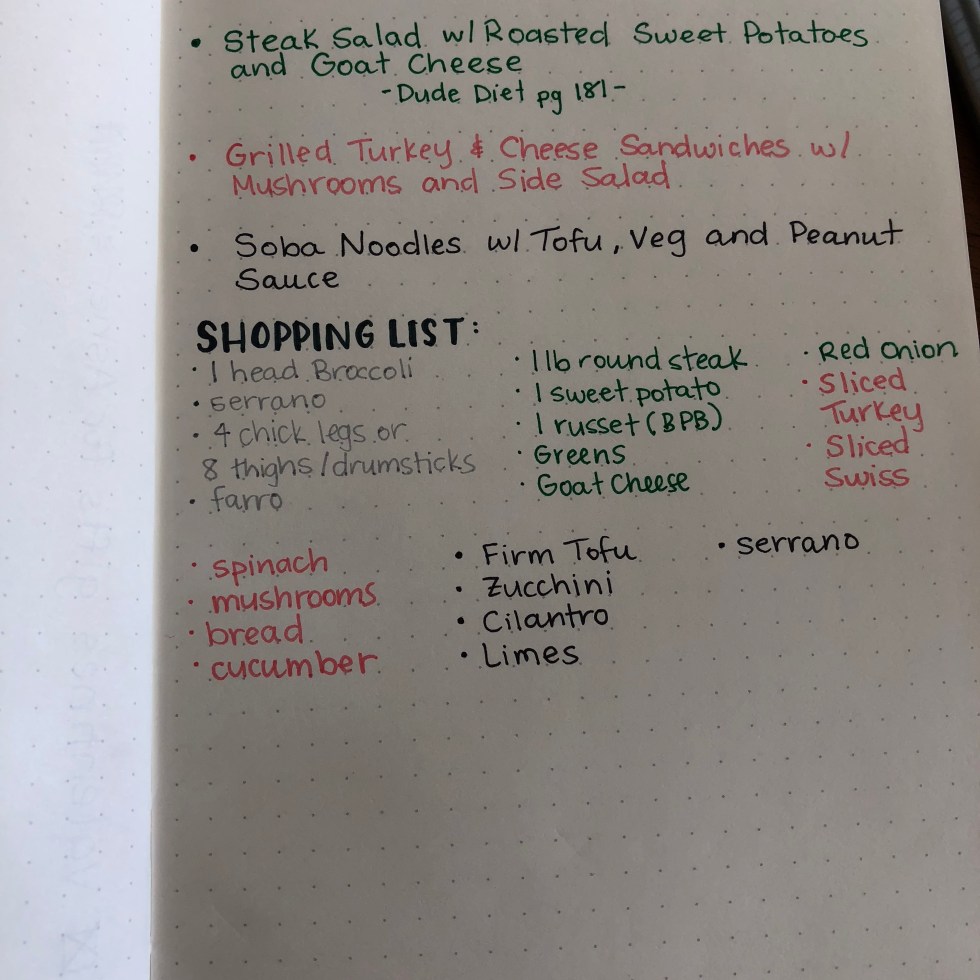 • Steak Salad w/ Roasted Sweet Potatoes
and Goat Cheese
-Dude Diet pg 181-
• Grilled Turkey & Cheese Sandwiches w/
Mushrooms and Side Salad
• Soba Noodles w/ Tofu, Veg and Peanut
Sauce
SHOPPING LIST:
• 1 head Broccoli
• serrano
• 4 chick legs or
8 thighs/drumsticks
• farro
• 1 lb round steak
• 1 sweet potato
• 1 russet (BPB)
• Greens
• Goat Cheese
• Red Onion
• Sliced
Turkey
• Sliced
Swiss
• spinach
• mushrooms
• bread
• cucumber
• Firm Tofu
• Zucchini
• Cilantro
• Limes
• serrano